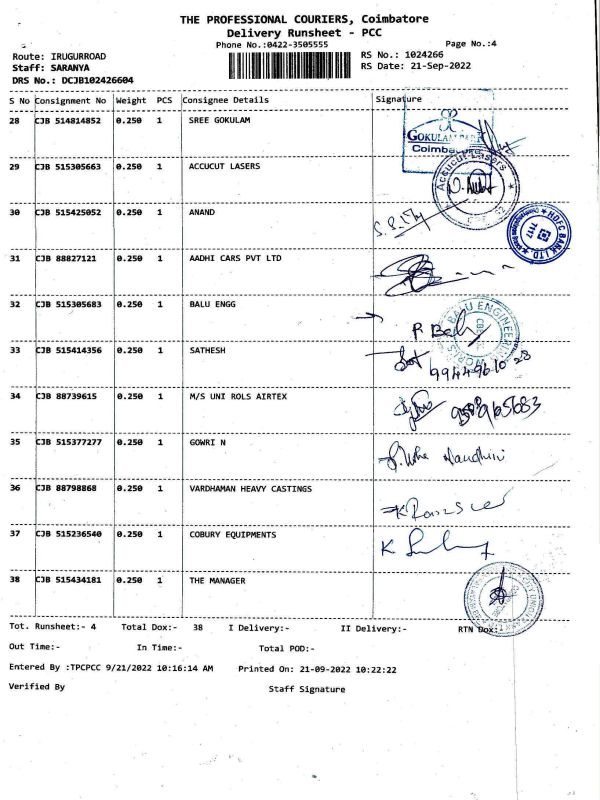 THE PROFESSIONAL COURIERS, Coimbatore
Delivery Runsheet - PCC
Phone No.:0422-3505555 Page No.:4
Route: IRUGURROAD RS No.: 1024266
Staff: SARANYA RS Date: 21-Sep-2022
DRS No.: DCJB102426604
S No Consignment No Weight PCS Consignee Details Signature
28 CJB 514814852 0.250 1 SREE GOKULAM
GOKULAM PARK
Coimbatore
29 CJB 515305663 0.250 1 ACCUCUT LASERS
Accucut Lasers
30 CJB 515425052 0.250 1 ANAND
HDFC BANK LTD
7117
31 CJB 88827121 0.250 1 AADHI CARS PVT LTD
32 CJB 515305683 0.250 1 BALU ENGG
BALU ENGINEERING WORKS
33 CJB 515414356 0.250 1 SATHESH
99449610 28
34 CJB 88739615 0.250 1 M/S UNI ROLS AIRTEX
35 CJB 515377277 0.250 1 GOWRI N
36 CJB 88798868 0.250 1 VARDHAMAN HEAVY CASTINGS
37 CJB 515236540 0.250 1 COBURY EQUIPMENTS
38 CJB 515434181 0.250 1 THE MANAGER
Tot. Runsheet:- 4 Total Dox:- 38 I Delivery:- II Delivery:- RTN Dox:
Out Time:- In Time:- Total POD:-
Entered By :TPCPCC 9/21/2022 10:16:14 AM Printed On: 21-09-2022 10:22:22
Verified By Staff Signature